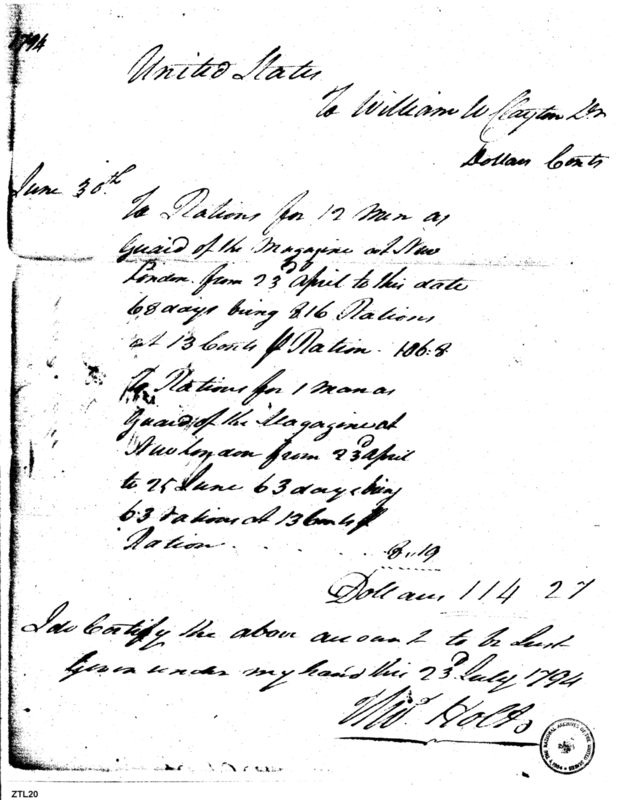 1794
United States
To William W Clayton Dr
Dollars Cents
June 30th
To Rations for 12 Men as
Guard of the Magazine at New
London from 23d April to this date
68 days being 816 Rations
at 13 Cents Ration 106.8
To Rations for 1 Man as
Guard of the Magazine at
New London from 23d April
to 25 June 63 days being
63 rations at 13 Cents
Ration . . . . 8.19
Dollars 114 27
I do Certify the above amount to be Just
Given under my hand this 23d July 1794
Holt
THE NATIONAL ARCHIVES OF THE UNITED STATES
ZTL20